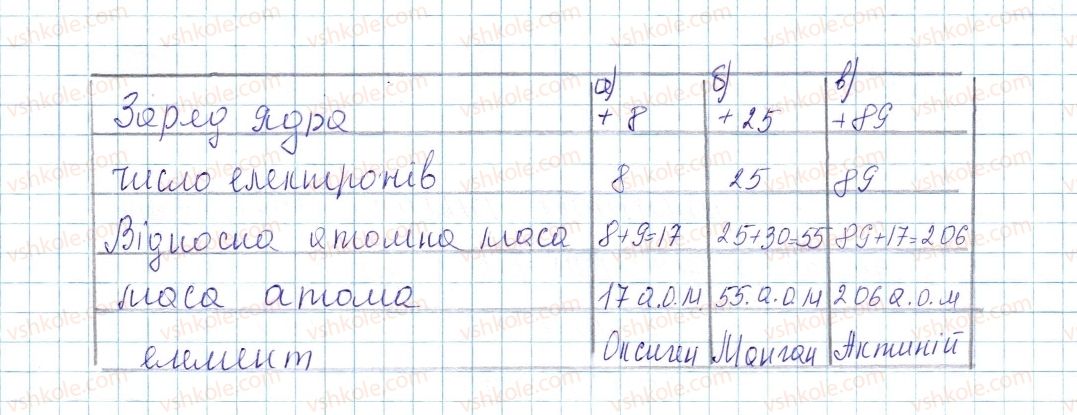 а) б) в)
Заряд ядра +8 +25 +89
число електронів 8 25 89
Відносна атомна маса 8+9=17 25+30=55 89+17=206
маса атома 17 а.о.м. 55.а.о.м 206 а.о.м
елемент Оксиген Манган Актиній